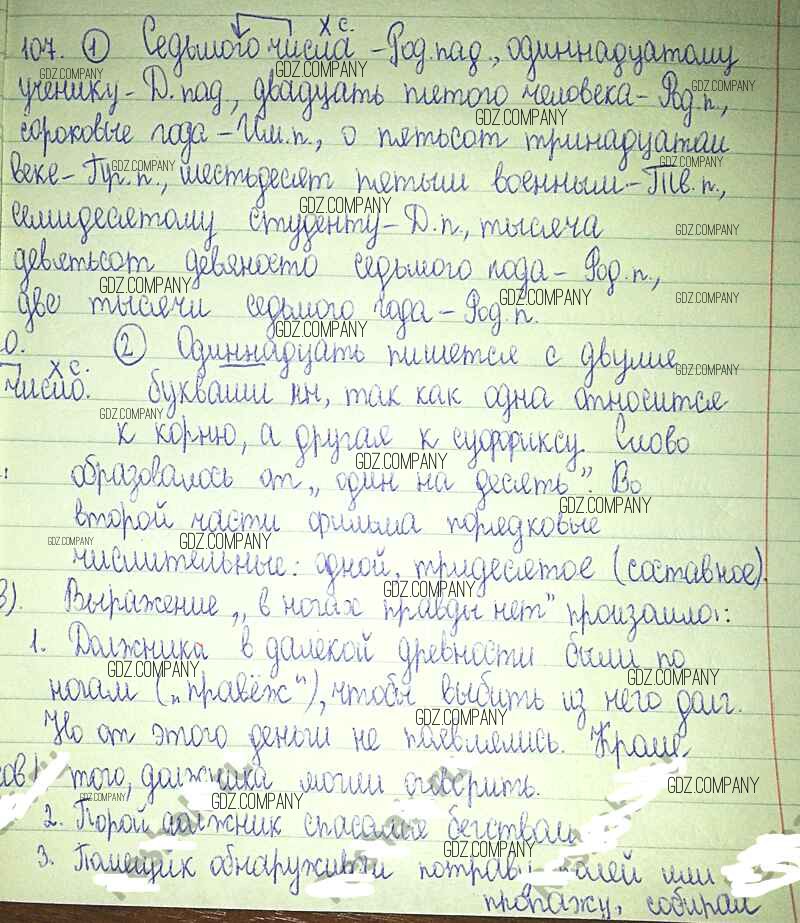 х с.
107. ① Седьмого числа - Род. пад., одиннадцатому
ученику - Д. пад., двадцать пятого человека - Род. п.,
сороковые года - Им. п., о пятьсот тринадцатом
веке - Пр. п., шестьдесят пятым военным - Тв. п.,
семидесятому студенту - Д. п., тысяча
девятьсот девяносто седьмого года - Род. п.,
две тысячи седьмого года - Род. п.
② Одиннадцать пишется с двумя
х с.
число. буквами нн, так как одна относится
к корню, а другая к суффиксу. Слово
образовалось от „один на десять". Во
второй части фильма порядковые
числительные: одной, тридесятое (составное).
3). Выражение „в ногах правды нет" произошло:
1. Должника в далёкой древности били по
ногам („правёж"), чтобы выбить из него долг.
Но от этого деньги не появлялись. Кроме
того, должника могли
2. Порой должник спасался бегством
3. Помещик обнаруживал потравы полей или
пропажу, собирал
GDZ.COMPANY